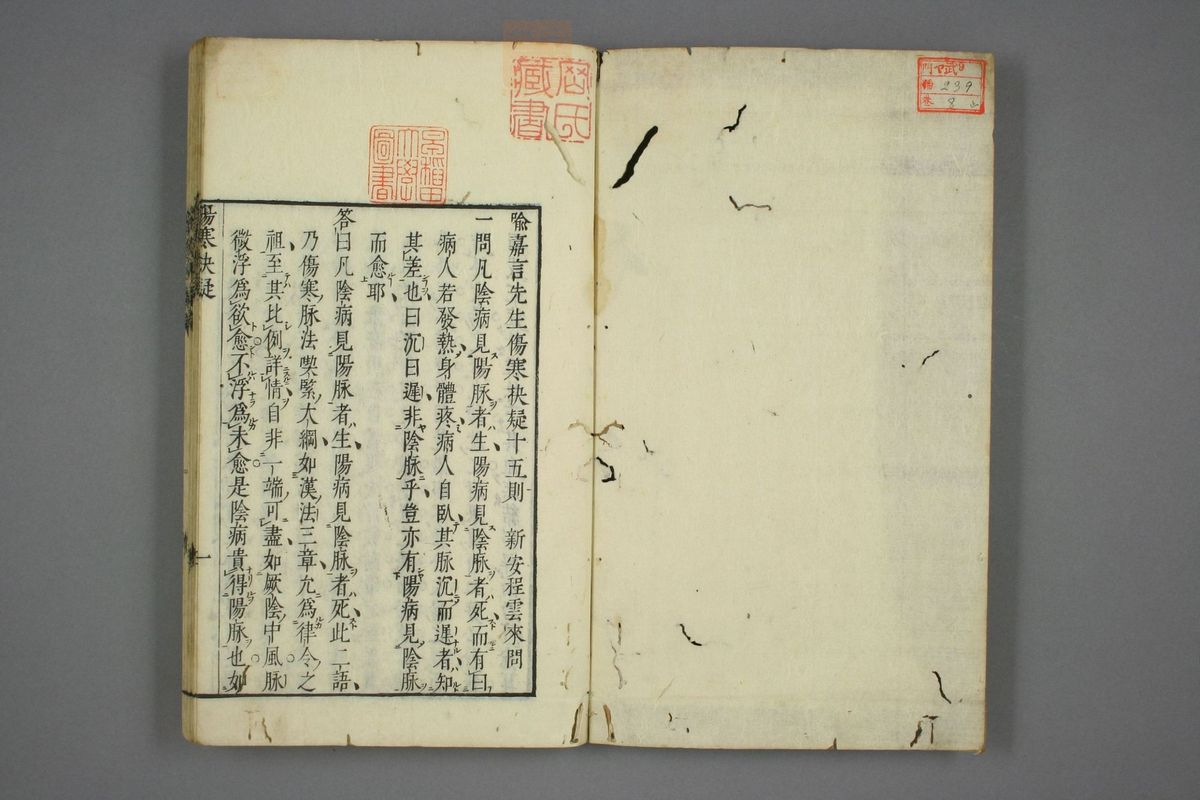 喩嘉言先生傷寒抉疑十五則　新安程雲來問
一問凡陰病見陽脉者生陽病見陰脉者死而有曰
病人若發熱身體疼病人自臥其脉沉而遲者知
其差也曰沉曰遲非陰脉乎豈亦有陽病見陰脉
而愈耶
答曰凡陰病見陽脉者生陽病見陰脉者死此二語
乃傷寒脉法喫緊大綱如漢法三章允為律令之
祖至其比例詳情自非一端可盡如厥陰中風脉
微浮為欲愈不浮為未愈是陰病貴得陽脉也如
傷寒抉疑
一
早稻田大學圖書
藏書
239